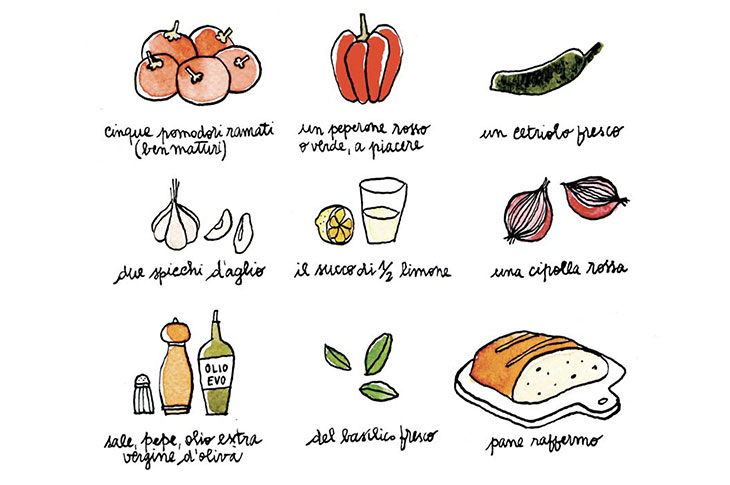 cinque pomodori ramati
(ben maturi)
un peperone rosso
o verde, a piacere
un cetriolo fresco
due spicchi d'aglio
il succo di 1/2 limone
una cipolla rossa
OLIO
EVO
sale, pepe, olio extra
vergine d'oliva
del basilico fresco
pane raffermo